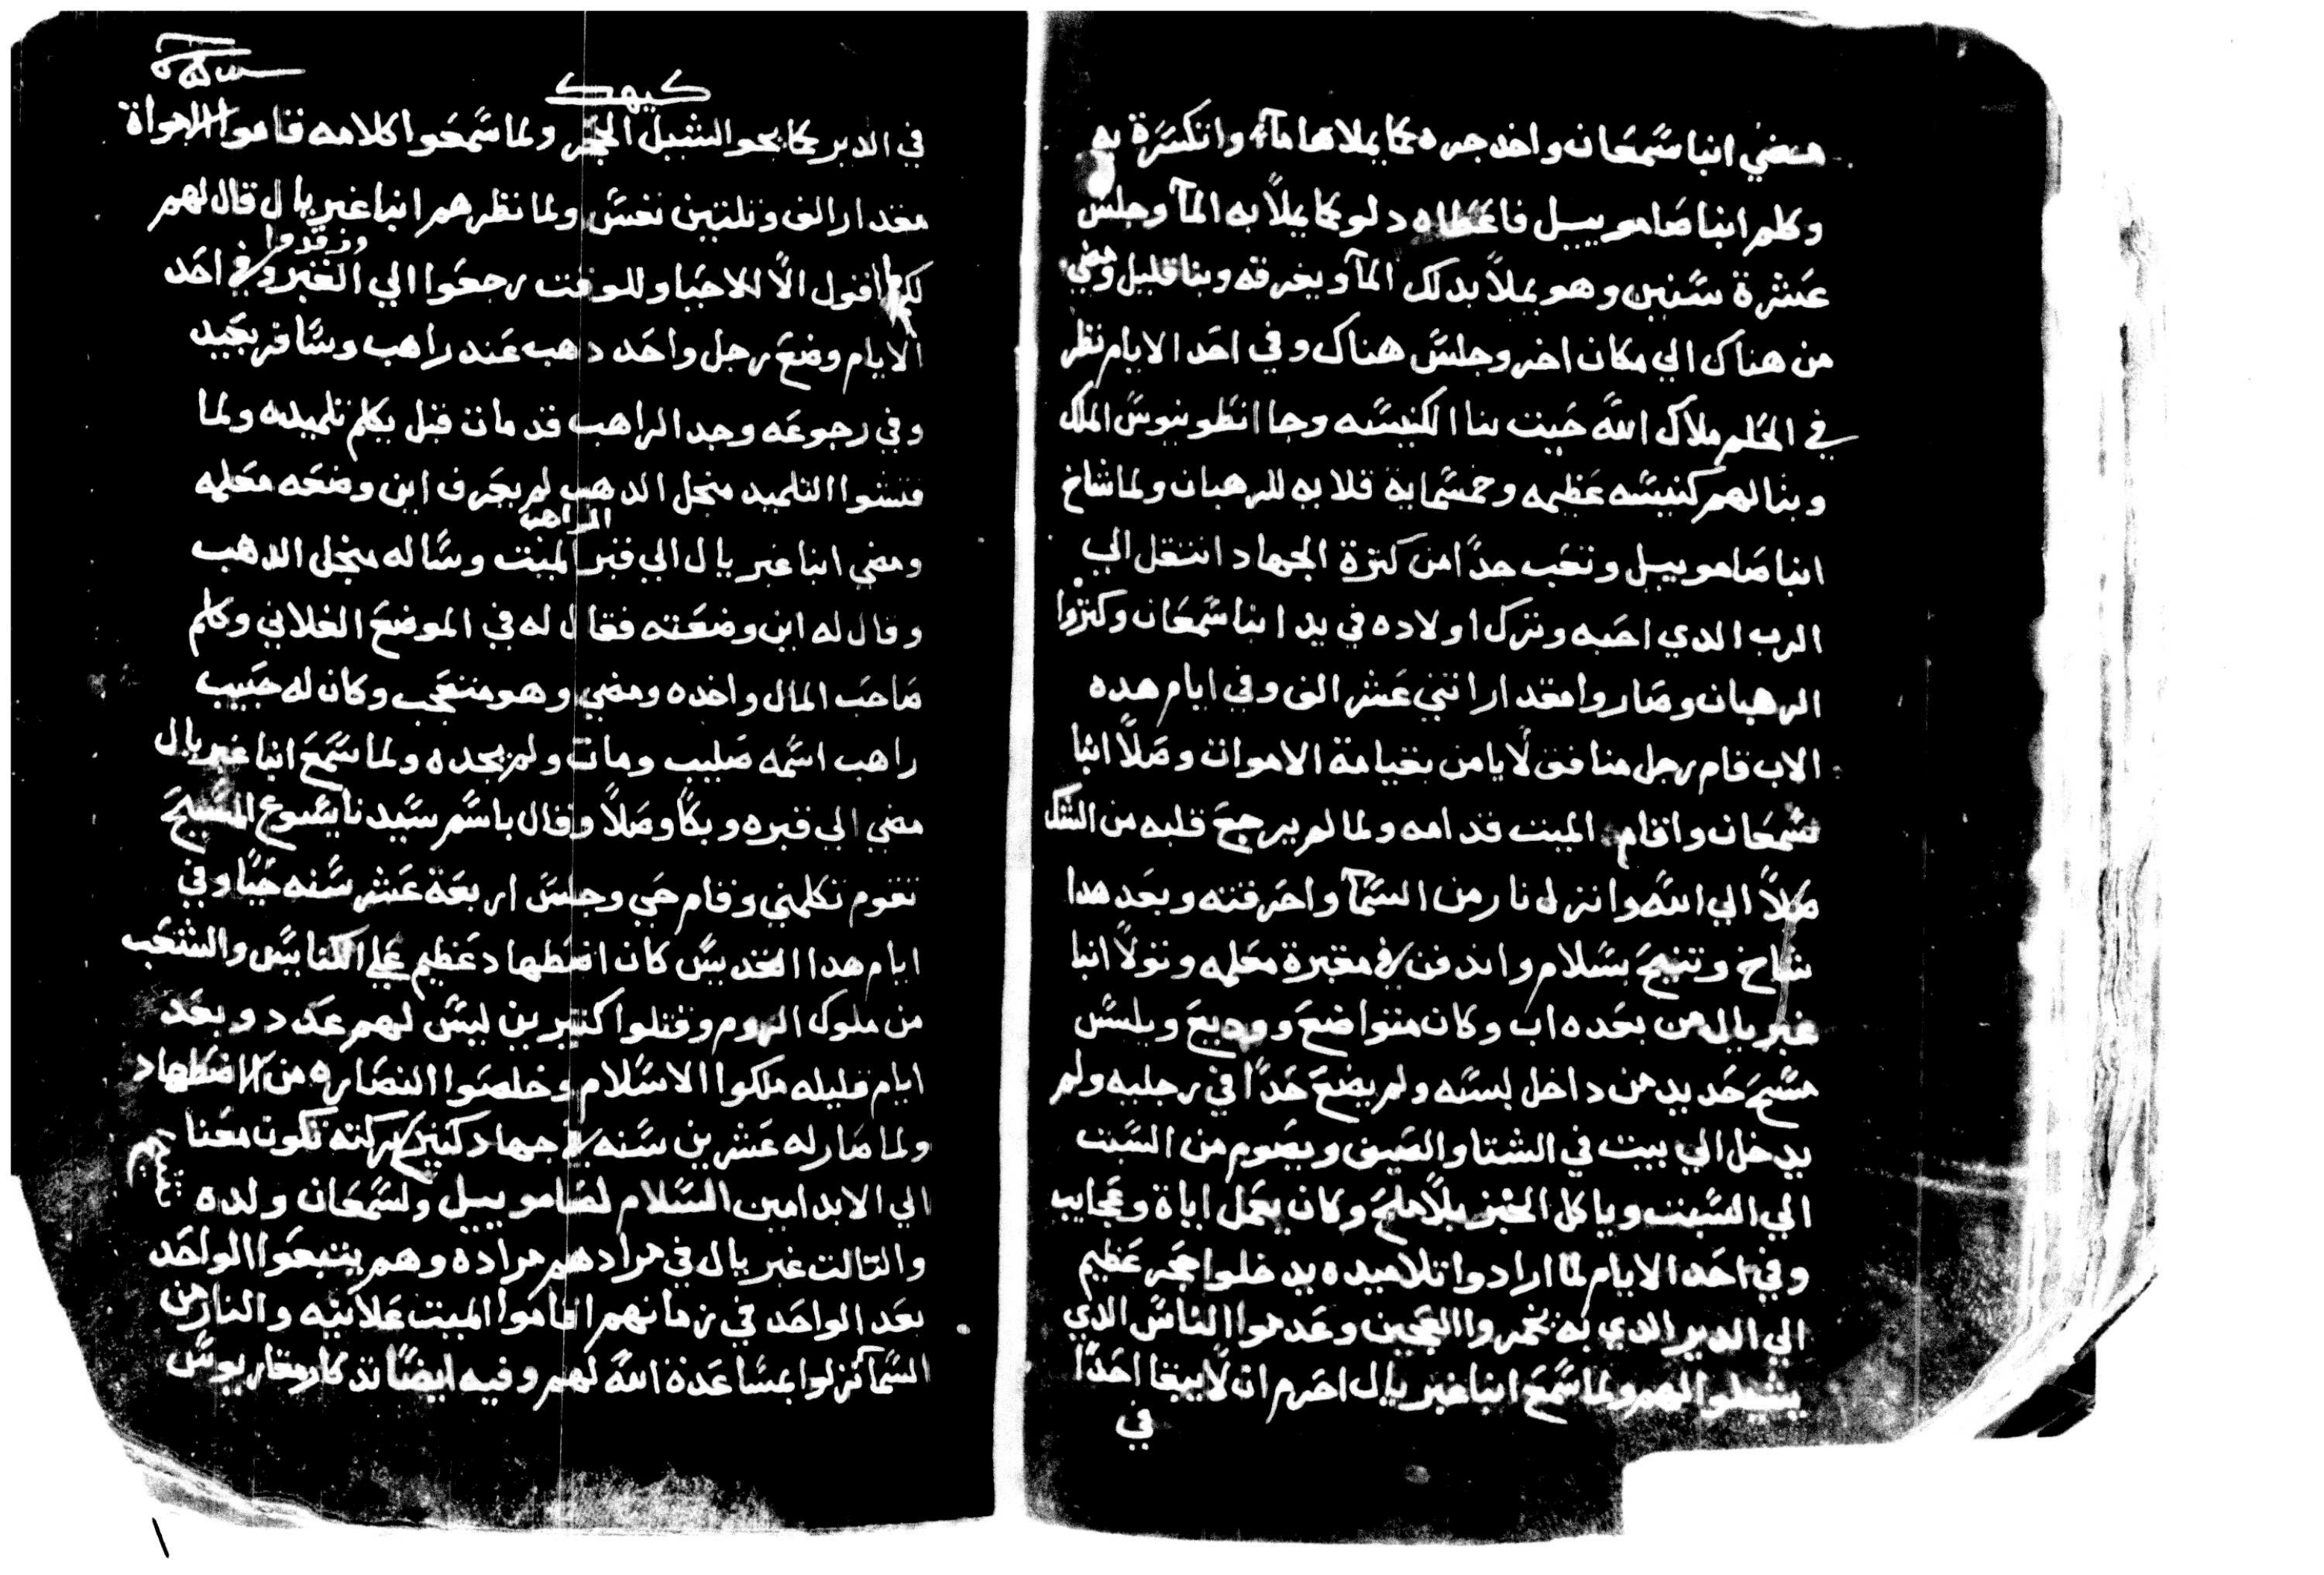 فمضي انبا سمعان واخد جره كما يملاها مآء وانكسرة به
وكلم انبا صامو ييل فاعطاه دلو كما يملاً به المآ وجلس
عشرة سنين وهو يملاً بدلك المآ ويغرقه وبنا قليل ومضي
من هناك الي مكان اخر وجلس هناك وفي احد الايام نظر
في الحلم ملاك الله حيت بنا الكنيسه وجا انطونيوس الملك
وبنا لهم كنيسه عظيمه وخمسماية قلايه للرهبان ولما شاخ
انبا صامو ييل وتعب جداً من كترة الجهاد انتقل الي
الرب الدي احبه وترك اولاده في يد انبا سمعان وكتروا
الرهبان وصاروا مقدار اتني عشر الف وفي ايام هده
الاب قام رجل منافق لا يامن بقيامة الاموات وصلاً انبا
سمعان واقام الميت قدامه ولما لم يرجع قلبه من الشك
صلاً الي الله وانزل نار من السمآ واحرقته وبعد هدا
شاخ وتنيح بسلام واندفن في مقبرة معلمه وتولاً انبا
غبريال من بعده اب وكان متواضع ووديع ويلبس
مسح حديد من داخل لبسه ولم يضع حداً في رجليه ولم
يدخل الي بيت في الشتا والصيف ويصوم من السبت
الي السبت وياكل الخبز بلاً ملح وكان يعمل اياة وعجايب
وفي احد الايام لما ارادوا تلاميده يدخلوا حجر عظيم
الي الدير الدي به يخمروا العجين وعدموا الناس الدي
يشيلوا لهم ولما سمع انبا غبريال احرم ان لا يبقا احداً
في
كيهك
في الدير كما يجوا لشيل الحجر ولما سمعوا كلامه قاموا الامواة
مقدار الف وتلتين نفس ولما نظرهم انبا غبريال قال لهم
لكم اقول الاً للاحيا وللوقت رجعوا الي القبر ورقدوا وفي احد
الايام وضع رجل واحد دهب عند راهب وسافر بعيد
وفي رجوعه وجد الراهب قد مات قبل يكلم تلميده ولما
فتشوا التلميد منجل الدهب لم يعرف اين وضعه معلمه
ومضي انبا غبريال الي قبر الراهب الميت وساله منجل الدهب
وقال له اين وضعته فقال له في الموضع الفلاني وكلم
صاحب المال واخده ومضي وهو متعجب وكان له حبيب
راهب اسمه صليب ومات ولم يجده ولما سمع انبا غبريال
مضي الي قبره وبكاً وصلاً وقال باسم سيدنا يسوع المسيح
تقوم تكلمني وقام حي وجلس اربعة عشر سنه حياً وفي
ايام هدا القديس كان اضطهاد عظيم علي الكنايس والشعب
من ملوك الروم وقتلوا كتيرين ليس لهم عدد وبعد
ايام قليله ملكوا الاسلام وخلصوا النصاره من الاضطهاد
ولما صار له عشرين سنه في جهاد كتير بركته تكون معنا
الي الابد امين السلام لصامو ييل ولسمعان ولده
والتالت غبريال في مرادهم مراده وهم يتبعوا الواحد
بعد الواحد في زمانهم اقاموا الميت علانيه والنار من
السما نزلوا بمساعدة الله لهم وفيه ايضاً تدكار مقاريوس